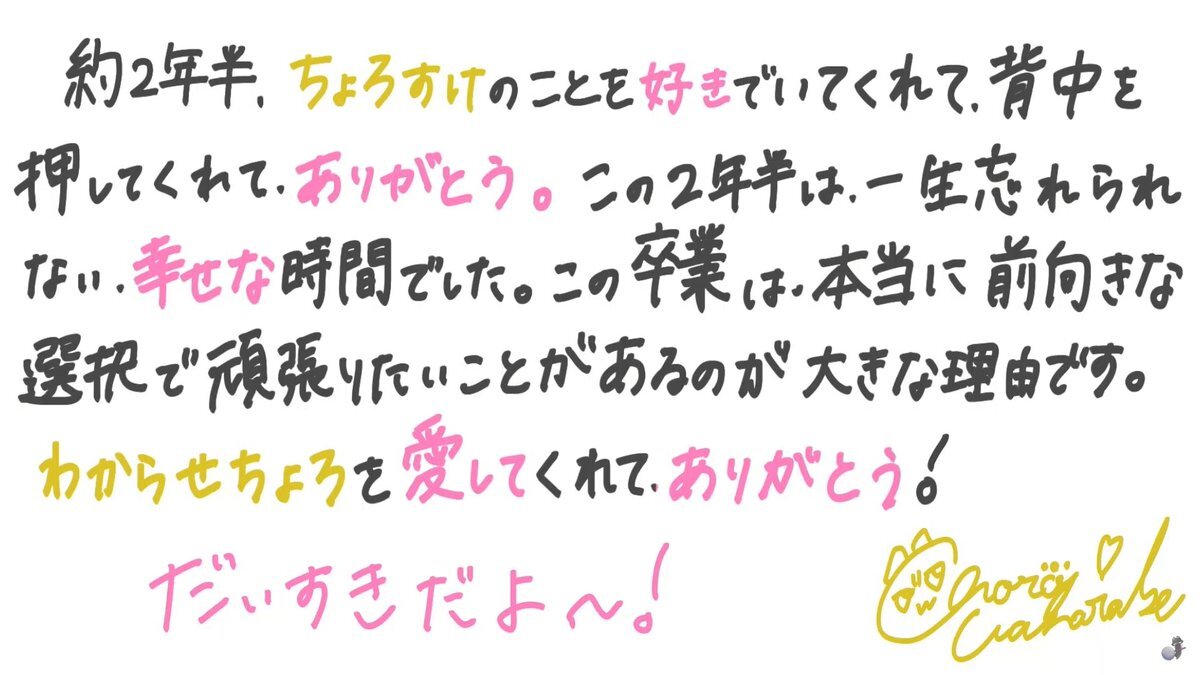 約2年半、ちょろすけのことを好きでいてくれて、背中を
押してくれて、ありがとう。この2年半は、一生忘れられ
ない、幸せな時間でした。この卒業は、本当に前向きな
選択で頑張りたいことがあるのが大きな理由です。
わからせちょろを愛してくれて、ありがとう!
だいすきだよ〜!